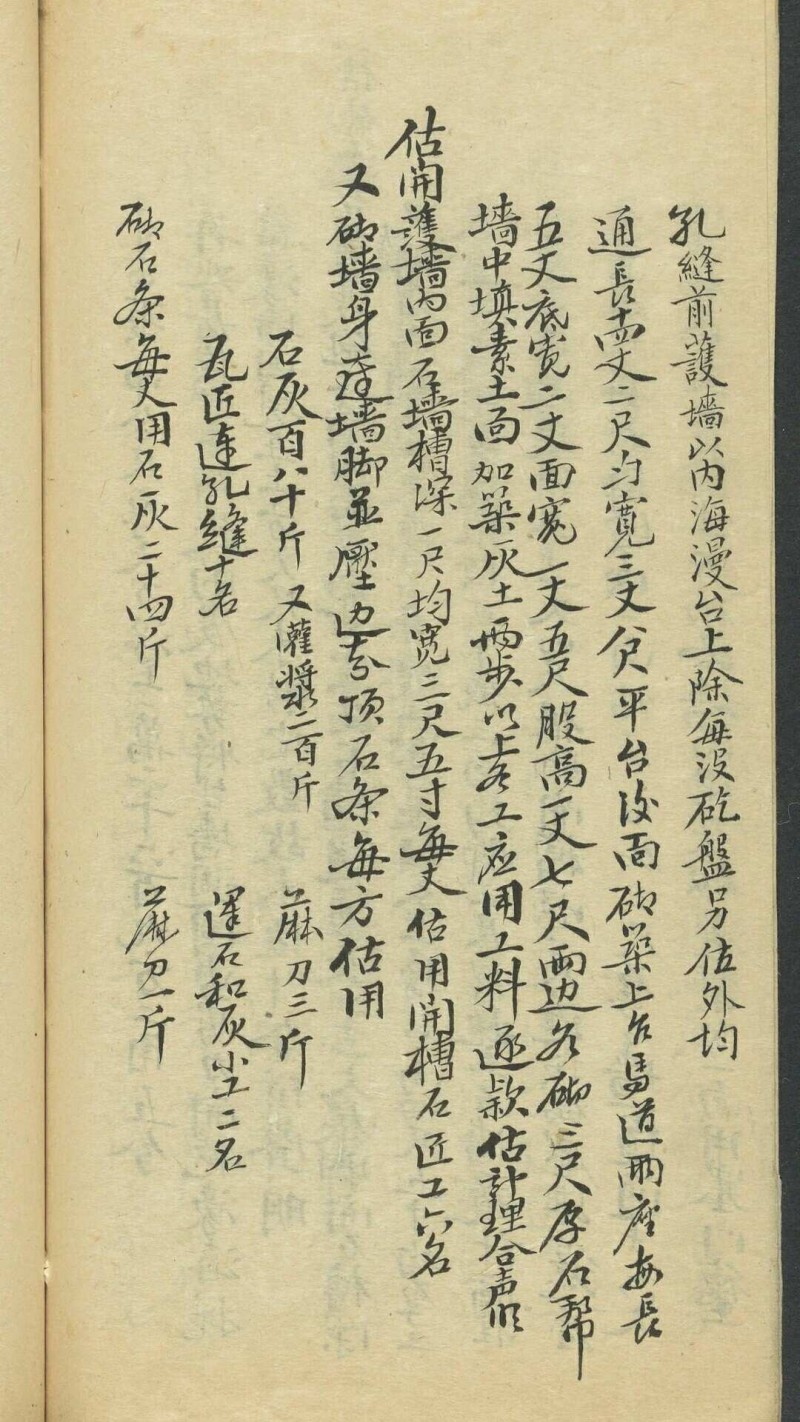 孔縫前護墻以內海漫台上除每没砣盤另估外均
通長十四丈二尺勻寬三丈貟平台後面砌築上台馬道兩座每長
五丈底寬二丈面寬一丈五尺股高一丈七尺兩边各砌三尺厚石幫
墻中填素土面加築灰土兩步以上各工应用工料逐款估計理合声明
估開護墻內面石墻槽深一尺均寬三尺五寸每丈估用開槽石匠工六名
又砌墻身連墻脚並壓边封頂石条每方估用
石灰百八十斤 又灌漿二百斤 蔴刀三斤
瓦匠連孔縫十名 運石和灰小工二名
砌石条每丈用石灰二十四斤 蔴刀一斤